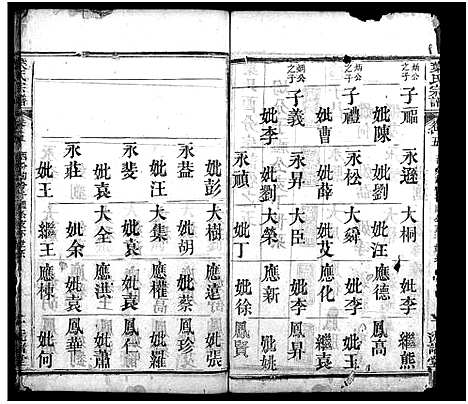 葉氏宗譜
炳公之子 子福 永遜 大桐 妣李 繼熊
妣陳 妣劉 妣汪 應德 鳳高
炳公之子 子禮 永松 大舜 妣李 妣王
妣曹 妣薛 妣艾 應化 繼袁
炳公之子 子義 永昇 大臣 妣李 鳳昇
妣李 妣劉 大榮 應新 妣姚
永禎 妣丁 妣徐 鳳賢
妣彭 大樹 應遠 妣張
永益 妣胡 妣蔡 鳳珍
妣汪 大集 應權 妣羅
永斐 妣袁 妣袁 鳳高
妣袁 大全 應洪 妣蕭
永莊 妣余 妣袁 鳳華
妣王 繼王 應棟 妣何